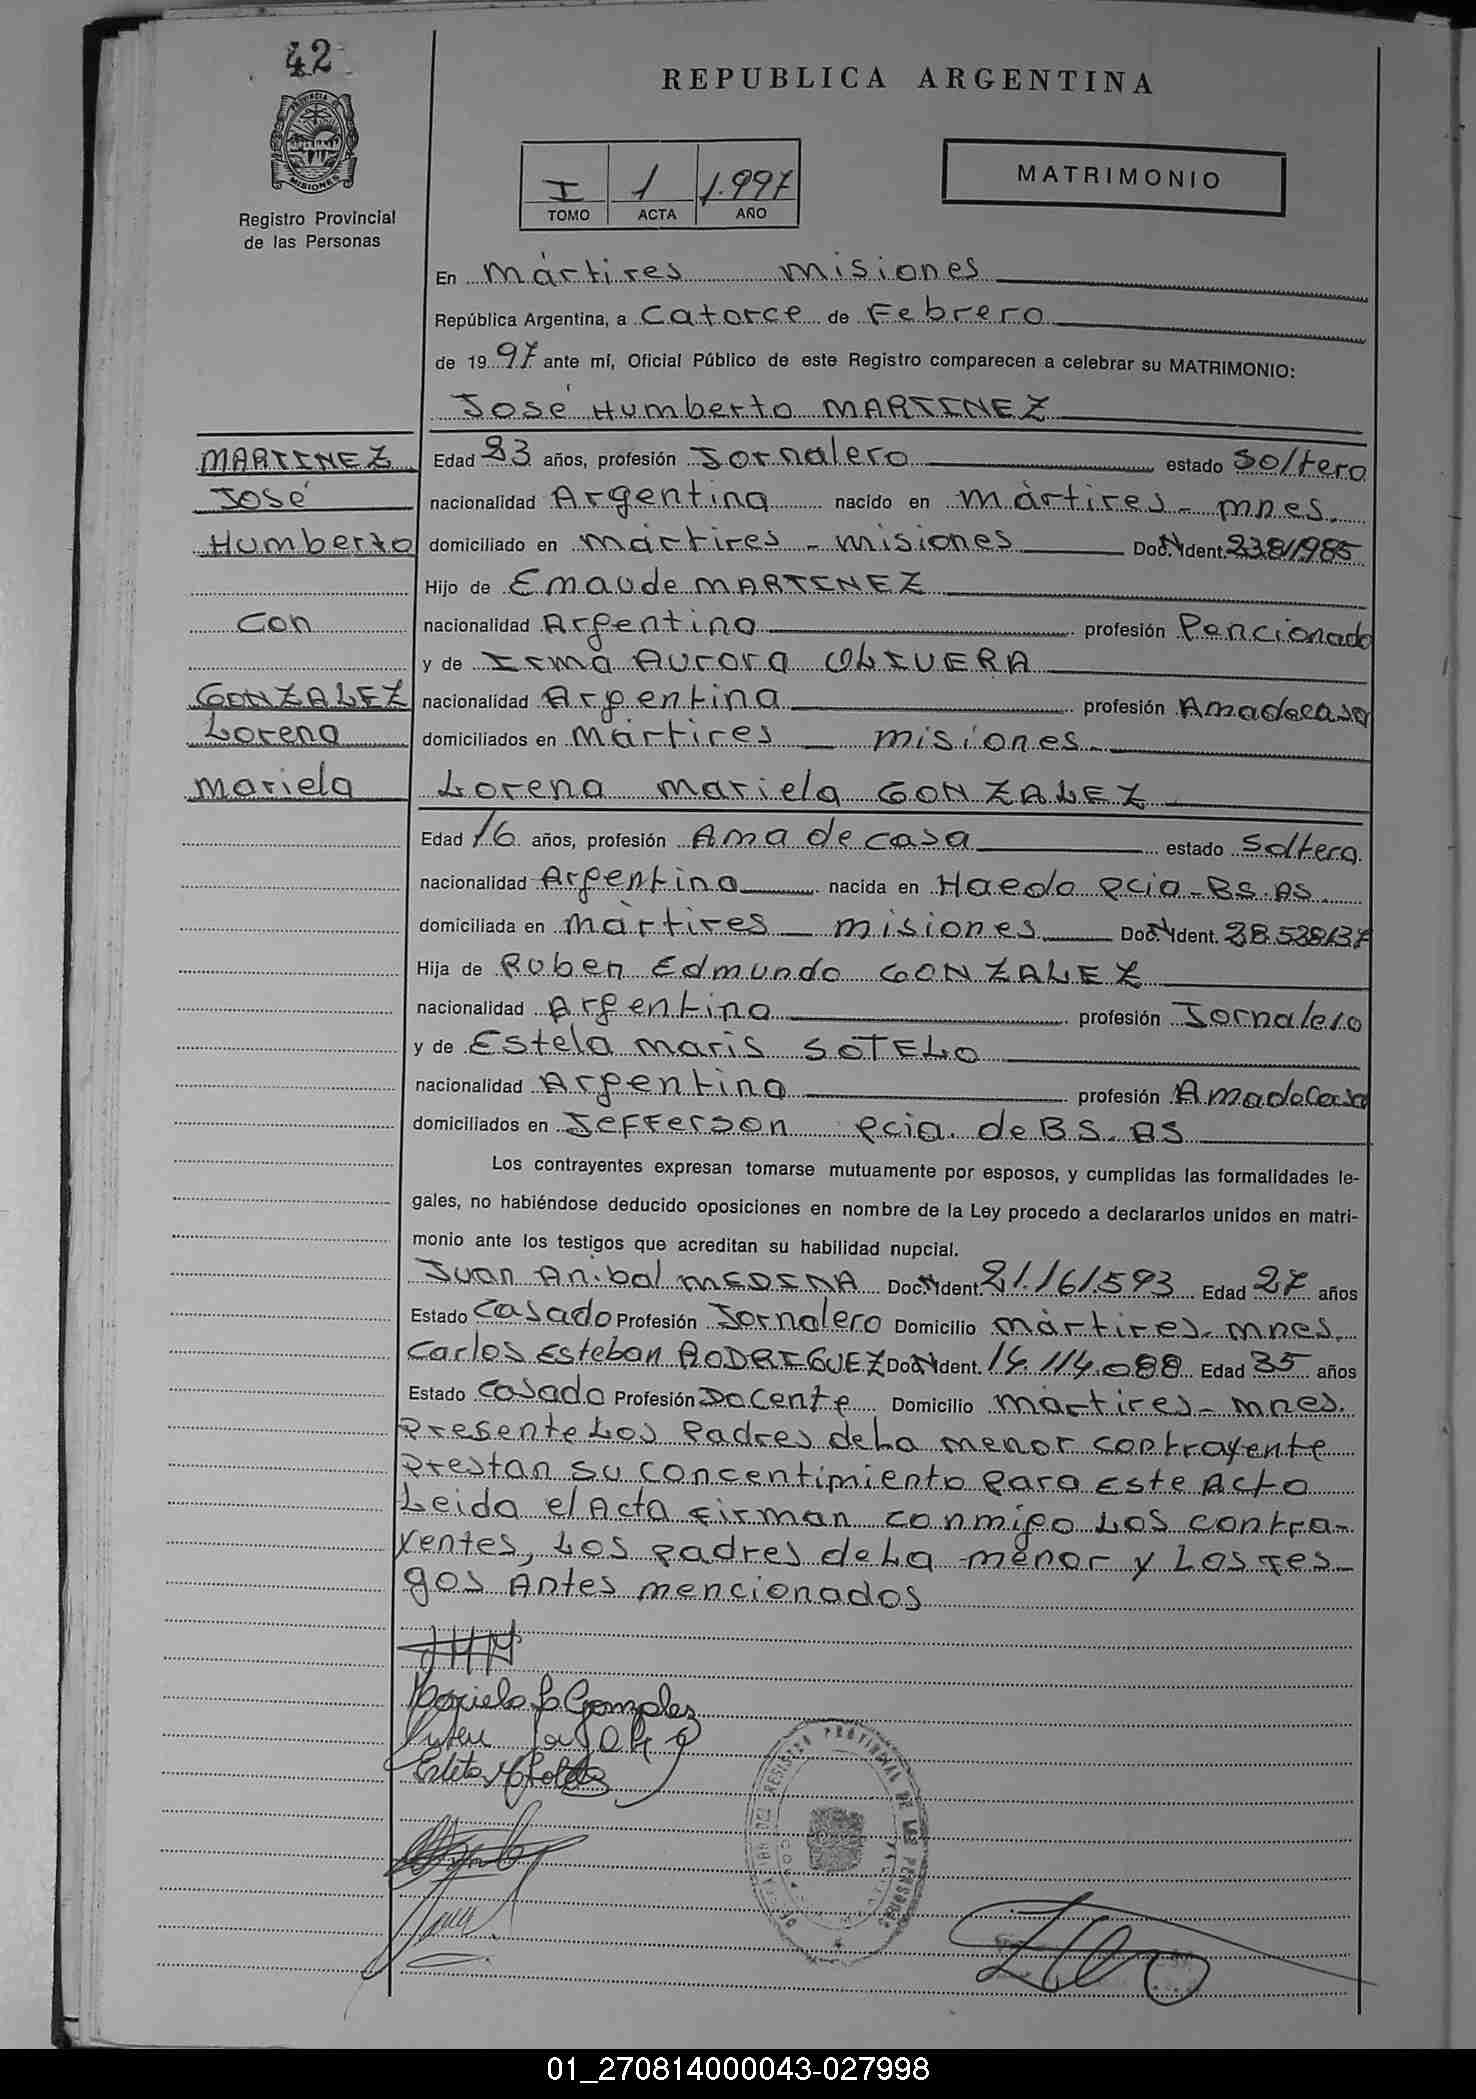 42
REPUBLICA ARGENTINA
PROVINCIA DE
MISIONES
Registro Provincial
de las Personas
I 1 1.997
TOMO ACTA AÑO
MATRIMONIO
En mártires misiones
República Argentina, a catorce de Febrero
de 1997 ante mí, Oficial Público de este Registro comparecen a celebrar su MATRIMONIO:
José Humberto MARTINEZ
MARTINEZ
José
Humberto
con
GONZALEZ
Lorena
mariela
Edad 23 años, profesión Jornalero estado Soltero
nacionalidad Argentina nacido en mártires - mnes.
domiciliado en mártires - misiones Doc. Ident.
Hijo de Emaude MARTINEZ
nacionalidad Argentino profesión Pencionado
y de Irma Aurora OLIVERA
nacionalidad Argentina profesión Amadecasa
domiciliados en mártires misiones
Lorena mariela GONZALEZ
Edad 16 años, profesión Ama de casa estado Soltera
nacionalidad Argentina nacida en Haedo Pcia - BS. AS.
domiciliada en mártires misiones Doc. Ident.
Hija de Ruben Edmundo GONZALEZ
nacionalidad Argentino profesión Jornalero
y de Estela maris SOTELO
nacionalidad Argentina profesión AmadeCasa
domiciliados en Jefferson Pcia. de BS. AS
Los contrayentes expresan tomarse mutuamente por esposos, y cumplidas las formalidades le-
gales, no habiéndose deducido oposiciones en nombre de la Ley procedo a declararlos unidos en matri-
monio ante los testigos que acreditan su habilidad nupcial.
Juan Anibal MEDINA Doc. Ident. 21.161.593 Edad 27 años
Estado Casado Profesión Jornalero Domicilio mártires - mnes.
Carlos Esteban RODRIGUEZ Doc. Ident. 14.114.088 Edad 35 años
Estado Casado Profesión Docente Domicilio mártires - mnes.
Presente Los Padres de La menor contrayente
Prestan su concentimiento para Este Acto
Leida el Acta Firman conmigo Los contra-
yentes, Los padres de La menor y Los Tes-
gos Antes mencionados
Mariela L Gonzalez
REGISTRO PROVINCIAL DE LAS PERSONAS
01_270814000043-027998